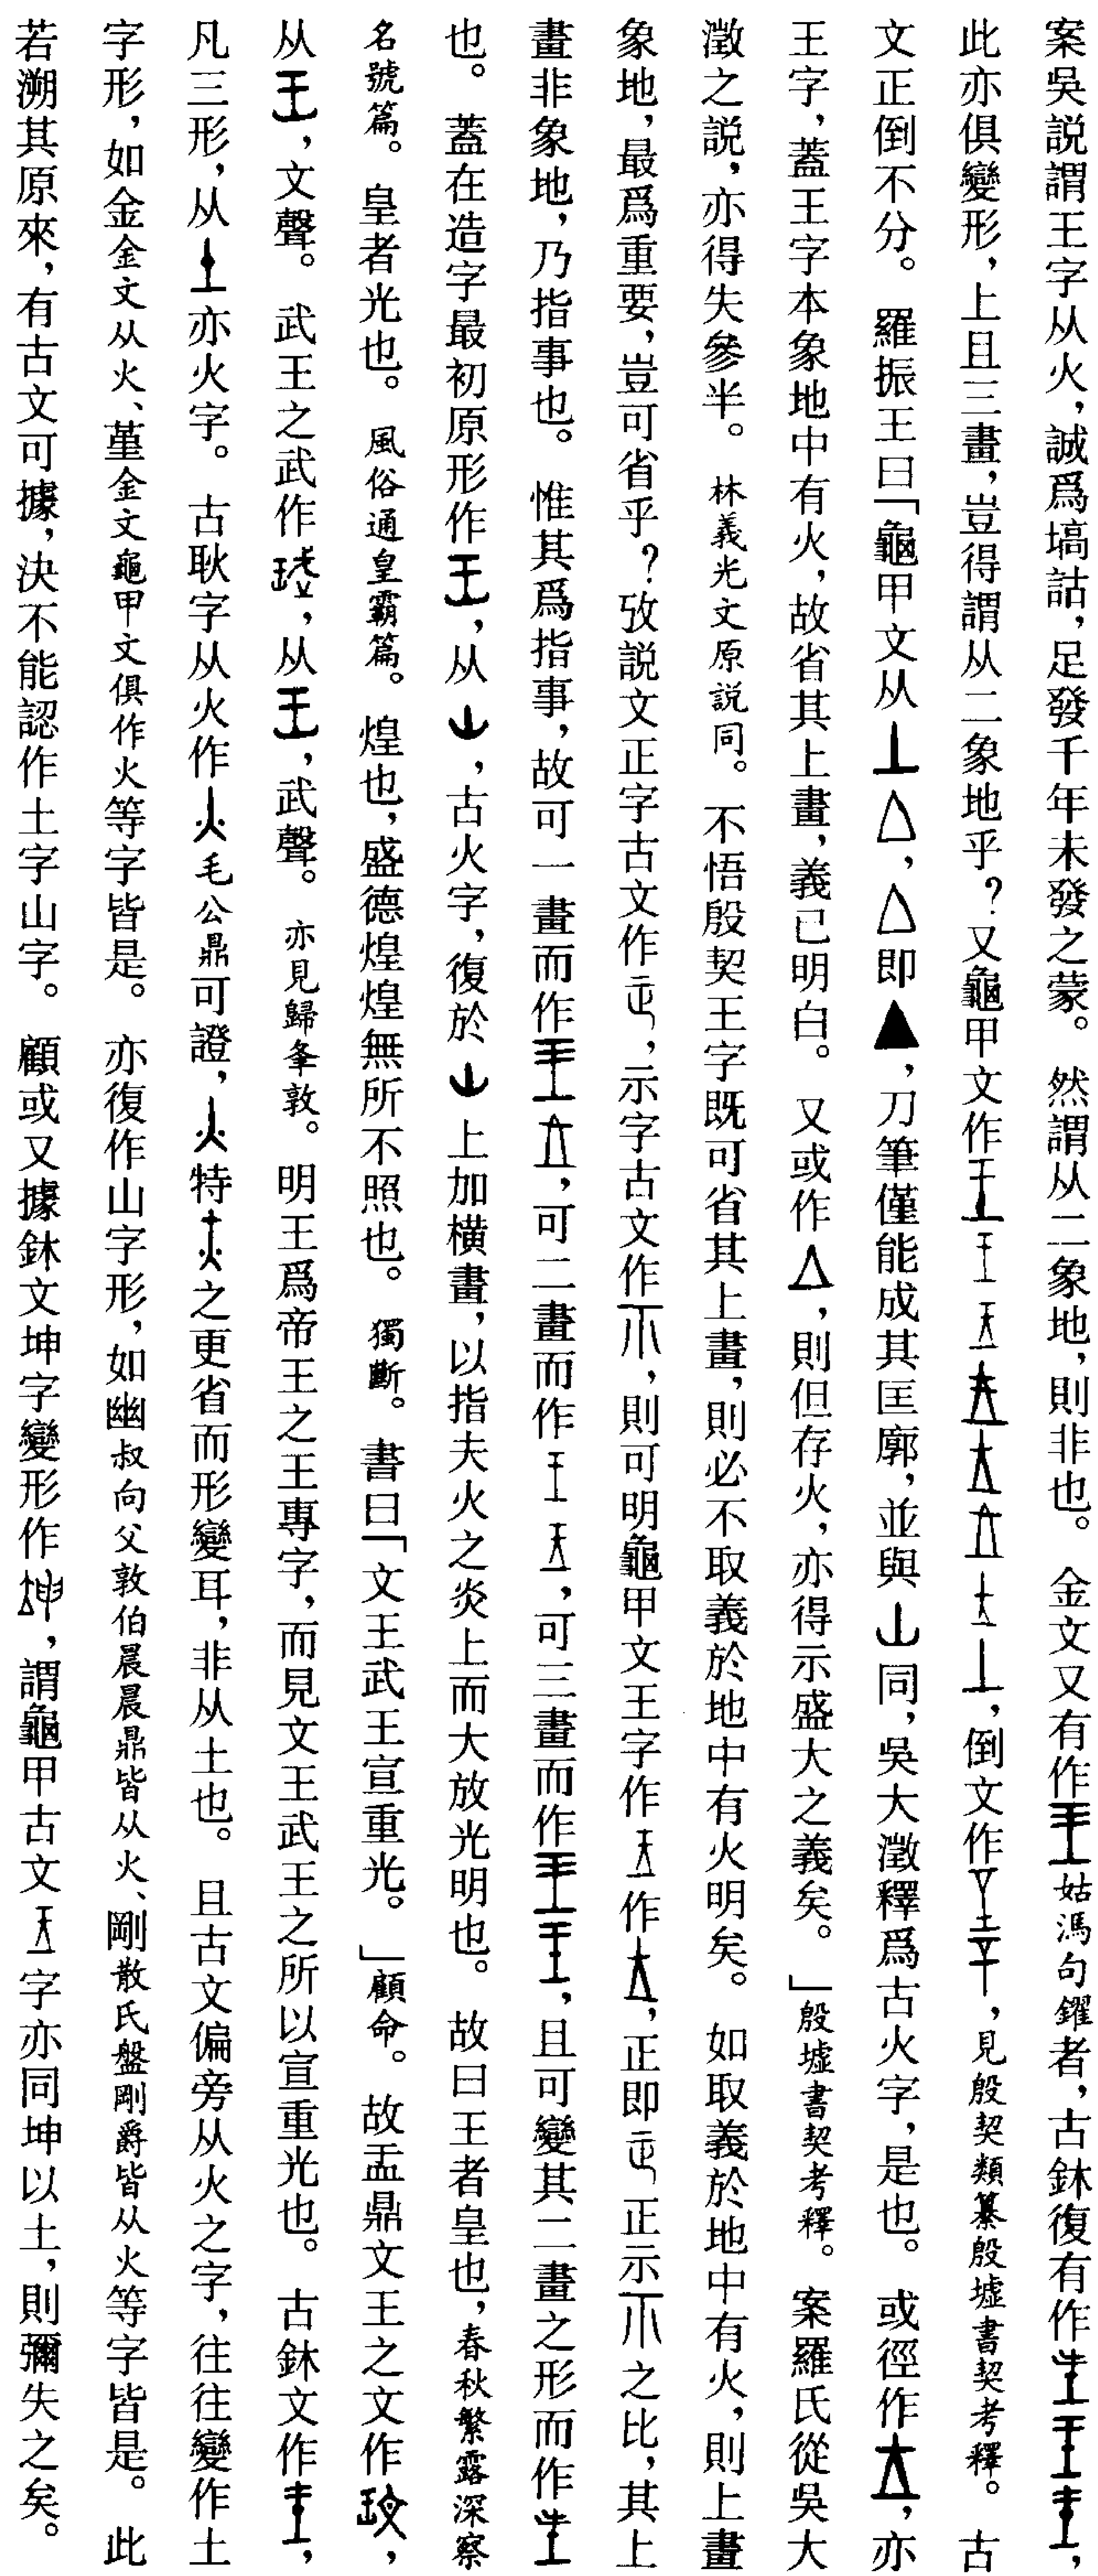 案吳説謂王字从火，誠爲塙詁，足發千年未發之蒙。然謂从二象地，則非也。金文又有作姑馮句鑃者，古鉢復有作，
此亦俱變形，上且三畫，豈得謂从二象地乎？又龜甲文作，倒文作，見殷契類纂殷墟書契考釋。古
文正倒不分。羅振王曰「龜甲文从，即▲，刀筆僅能成其匡廓，並與同，吳大澂釋爲古火字，是也。或徑作，亦
王字，蓋王字本象地中有火，故省其上畫，義已明白。又或作，則但存火，亦得示盛大之義矣。」殷墟書契考釋。案羅氏從吳大
澂之説，亦得失參半。林義光文原説同。不悟殷契王字既可省其上畫，則必不取義於地中有火明矣。如取義於地中有火，則上畫
象地，最爲重要，豈可省乎？攷説文正字古文作，示字古文作，則可明龜甲文王字作作，正即正示之比，其上
畫非象地，乃指事也。惟其爲指事，故可一畫而作，可二畫而作，可三畫而作，且可變其二畫之形而作
也。蓋在造字最初原形作，从，古火字，復於上加橫畫，以指夫火之炎上而大放光明也。故曰王者皇也，春秋繁露深察
名號篇。皇者光也。風俗通皇霸篇。煌也，盛德煌煌無所不照也。獨斷。書曰「文王武王宣重光。」顧命。故盂鼎文王之文作玟，
从，文聲。武王之武作珷，从，武聲。亦見歸夆敦。明王爲帝王之王專字，而見文王武王之所以宣重光也。古鉢文作，
凡三形，从亦火字。古耿字从火作毛公鼎可證，特之更省而形變耳，非从土也。且古文偏旁从火之字，往往變作土
字形，如金金文从火、堇金文龜甲文俱作火等字皆是。亦復作山字形，如幽叔向父敦伯晨晨鼎皆从火、剛散氏盤剛爵皆从火等字皆是。此
若溯其原來，有古文可據，決不能認作土字山字。顧或又據鉢文坤字變形作，謂龜甲古文字亦同坤以土，則彌失之矣。